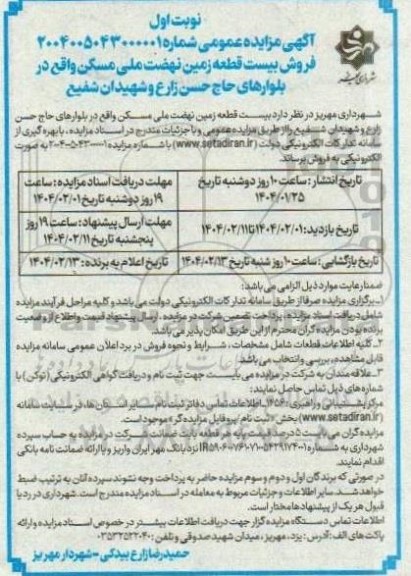 نوبت اول
آگهی مزایده عمومی شماره ۲۰۰۴۰۰۵۰۴۳۰۰۰۰۰۱
فروش بیست قطعه زمین نهضت ملی مسکن واقع در
بلوارهای حاج حسن زارع و شهیدان شفیع
شهرداری مهریز در نظر دارد بیست قطعه زمین نهضت ملی مسکن واقع در بلوارهای حاج حسن
زارع و شهیدان شفیع را از طریق مزایده عمومی و با جزئیات مندرج در اسناد مزایده، با بهره گیری از
سامانه تدارکات الکترونیکی دولت (www.setadiran.ir) با شماره مزایده به صورت
الکترونیکی به فروش برساند.
تاریخ انتشار: ساعت ۱۰ روز دوشنبه تاریخ ۱۴۰۴/۰۱/۲۵
مهلت دریافت اسناد مزایده: ساعت ۱۹ روز دوشنبه تاریخ ۱۴۰۴/۰۲/۰۱
تاریخ بازدید: ۱۴۰۴/۰۲/۰۱ تا ۱۴۰۴/۰۲/۱۱
مهلت ارسال پیشنهاد: ساعت ۱۹ روز پنجشنبه تاریخ ۱۴۰۴/۰۲/۱۱
تاریخ بازگشایی: ساعت ۱۰ روز شنبه تاریخ ۱۴۰۴/۰۲/۱۳
تاریخ اعلام به برنده: ۱۴۰۴/۰۲/۱۳
ضمنا رعایت موارد ذیل الزامی می باشد:
۱_برگزاری مزایده صرفا از طریق سامانه تدارکات الکترونیکی دولت می باشد و کلیه مراحل فرآیند مزایده
شامل دریافت اسناد مزایده، پرداخت تضمین شرکت در مزایده، ارسال پیشنهاد قیمت و اطلاع از وضعیت
برنده بودن مزایده گران محترم از این طریق امکان پذیر می باشد.
۲_کلیه اطلاعات قطعات شامل مشخصات، شرایط و نحوه فروش در برد اعلان عمومی سامانه مزایده
قابل مشاهده، بررسی و انتخاب می باشد.
۳_علاقه مندان به شرکت در مزایده می بایست جهت ثبت نام و دریافت گواهی الکترونیکی (توکن) با
شماره های ذیل تماس حاصل نمایند:
مرکز پشتیبانی و راهبری: ۱۴۵۶ اطلاعات تماس دفاتر ثبت نام سایر استان ها، در سایت سامانه
(www.setadiran.ir) بخش «ثبت نام/پروفایل مزایده گر» موجود است.
مزایده گران می بایست ۵ درصد قیمت پایه هر قطعه بابت ضمانت شرکت در مزایده به حساب سپرده
شهرداری به شماره نزد بانک مهر ایران واریز و یا ارائه ضمانت نامه بانکی
اقدام نمایند.
در صورتی که برندگان اول و دوم و سوم مزایده حاضر به پرداخت وجه نشوند سپرده آنان به ترتیب ضبط
خواهد شد. سایر اطلاعات و جزئیات مربوط به معامله در اسناد مزایده مندرج است. شهرداری در رد یا
قبول هر یک از پیشنهادها مختار است.
اطلاعات تماس دستگاه مزایده گزار جهت دریافت اطلاعات بیشتر در خصوص اسناد مزایده و ارائه
پاکت های الف: آدرس: یزد، مهریز، میدان شهید صدوقی و تلفن: ۰۳۵۳۲۵۲۲۰۴۰
حمیدرضا زارع بیدکی - شهردار مهریز